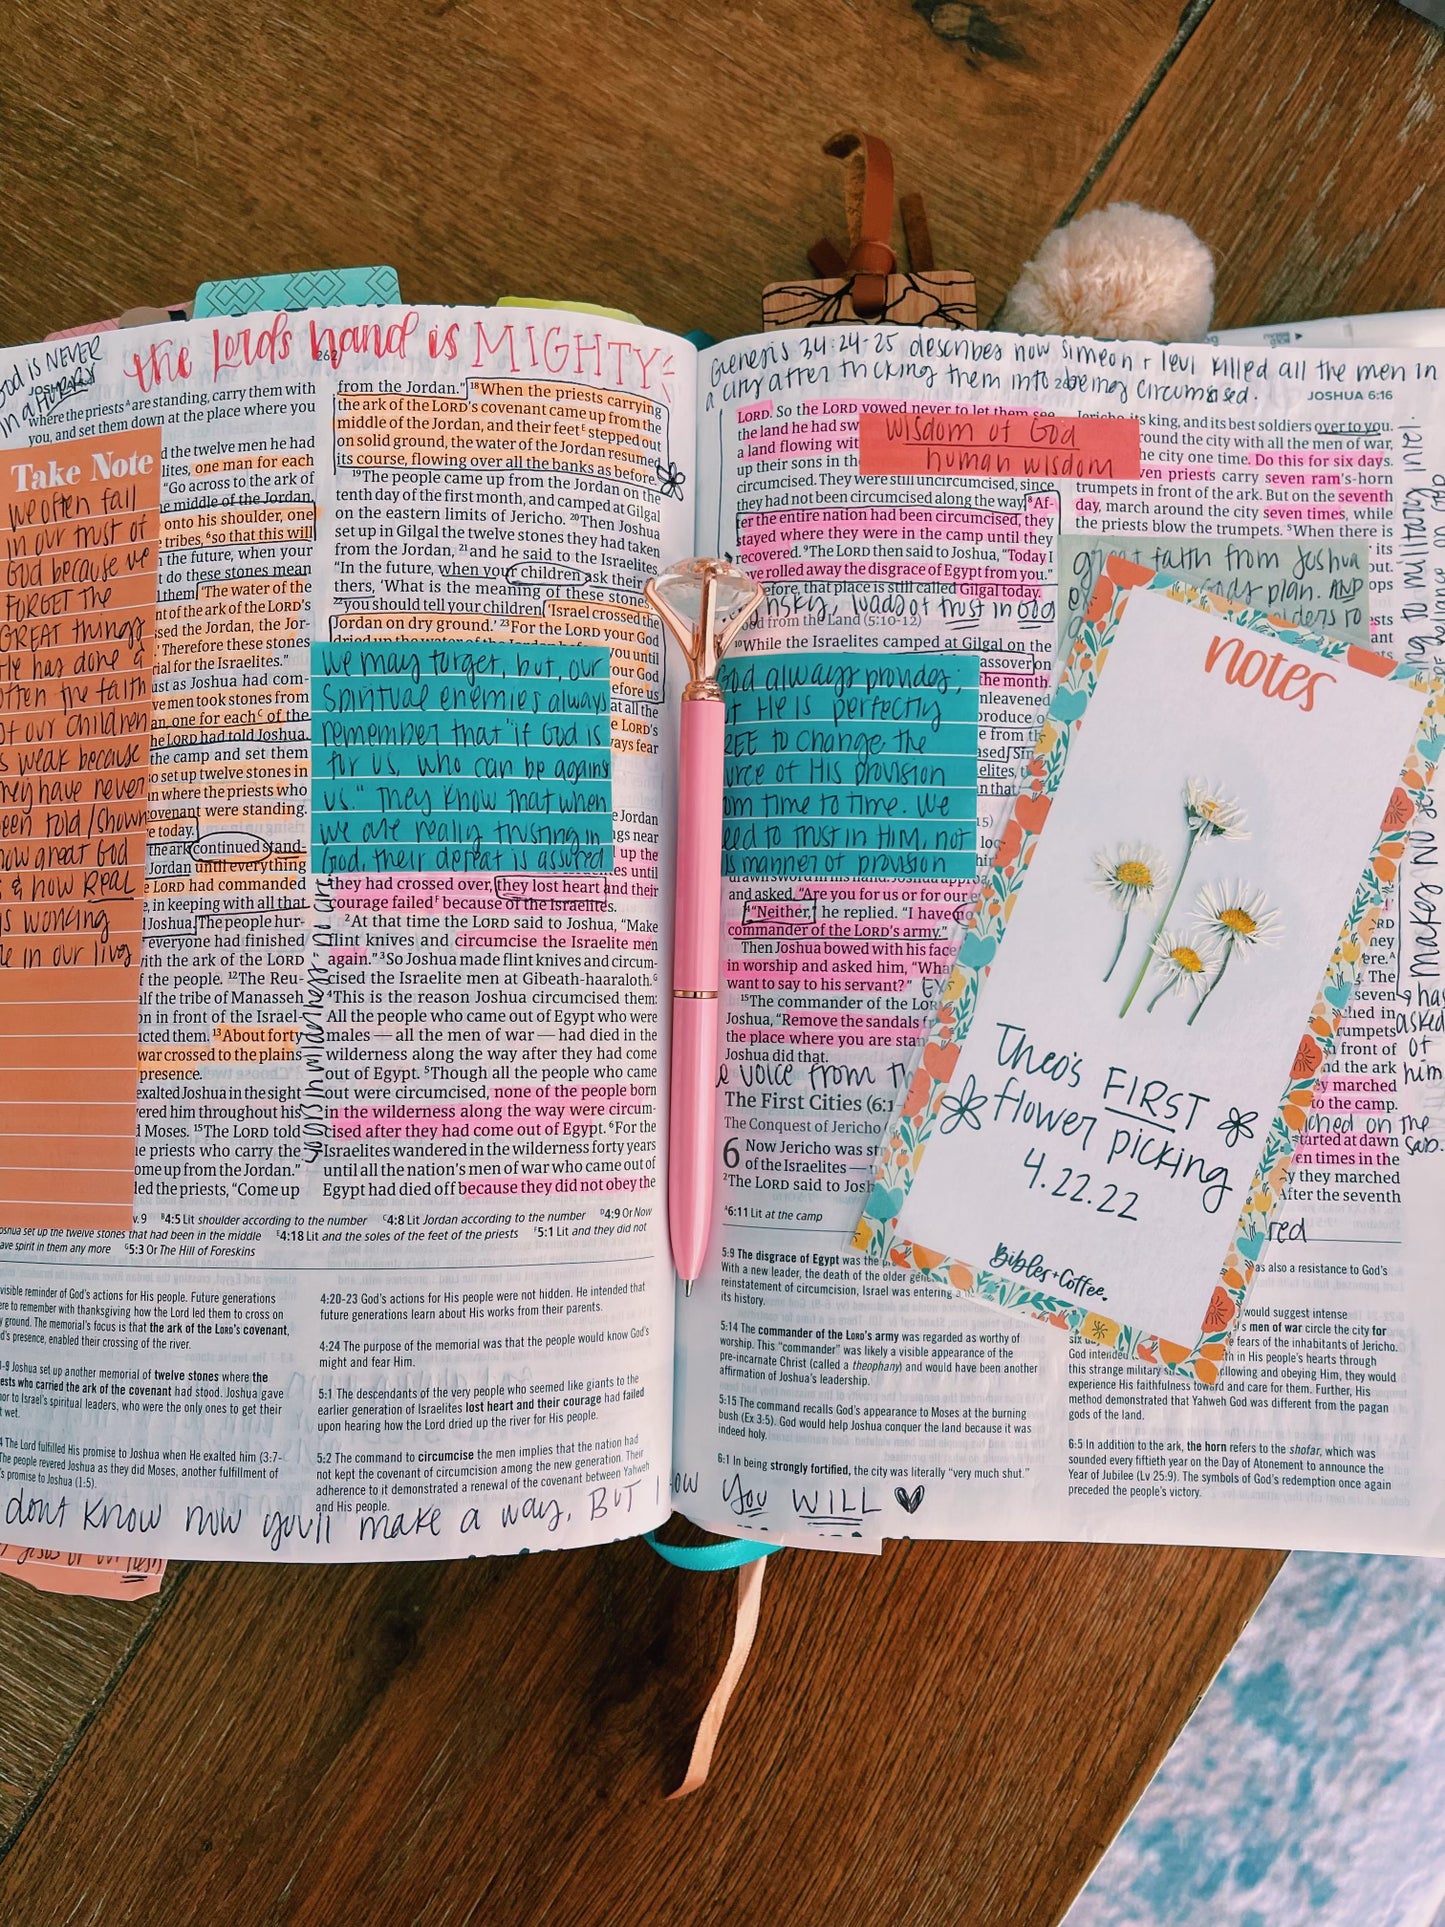 GOD IS NEVER
in a hurry
the Lord's hand is MIGHTY
262
where the priestsᴬ are standing, carry them with
you, and set them down at the place where you
d the twelve men he had
lites, one man for each
"Go across to the ark of
e middle of the Jordan,
onto his shoulder, one
e tribes, ⁶so that this will
n the future, when your
t do these stones mean
them] 'The water of the
nt of the ark of the LORD's
sed the Jordan, the Jor-
.' Therefore these stones
rial for the Israelites."
ust as Joshua had com-
ve men took stones from
an, one for eachᶜ of the
he LORD had told Joshua.
the camp and set them
so set up twelve stones in
an where the priests who
covenant were standing.
e today.
the ark continued stand-
Jordan until everything
e LORD had commanded
e, in keeping with all that
Joshua. The people hur-
everyone had finished
ith the ark of the LORD
f the people. ¹²The Reu-
alf the tribe of Manasseh
on in front of the Israel-
cted them. ¹³About forty
war crossed to the plains
presence.
exalted Joshua in the sight
ered him throughout his
d Moses. ¹⁵The LORD told
e priests who carry the
ome up from the Jordan."
ded the priests, "Come up
Take Note
we often fail
in our trust of
God because we
FORGET the
GREAT things
He has done &
often the faith
of our children
is weak because
they have never
been told/shown
how great God
is & how REAL
is working
e in our lives
from the Jordan." ¹⁸When the priests carrying
the ark of the LORD's covenant came up from the
middle of the Jordan, and their feetᴱ stepped out
on solid ground, the water of the Jordan resumed
its course, flowing over all the banks as before.
¹⁹The people came up from the Jordan on the
tenth day of the first month, and camped at Gilgal
on the eastern limits of Jericho. ²⁰Then Joshua
set up in Gilgal the twelve stones they had taken
from the Jordan, ²¹and he said to the Israelites,
"In the future, when your children ask their
thers, 'What is the meaning of these stones
²²you should tell your children, 'Israel crossed the
Jordan on dry ground.' ²³For the LORD your God
dried up the water of
you until
our God
efore us
at all the
e LORD's
ays fear
we may forget, but, our
spiritual enemies always
remember that "if God is
for us, who can be against
us." They know that when
we are really trusting in
God, their defeat is assured
e Jordan
ngs near
up the
es until
they had crossed over, they lost heart and their
courage failedᶠ because of the Israelites.
²At that time the LORD said to Joshua, "Make
flint knives and circumcise the Israelite men
again." ³So Joshua made flint knives and circum-
cised the Israelite men at Gibeath-haaraloth.ᴳ
⁴This is the reason Joshua circumcised them:
All the people who came out of Egypt who were
males — all the men of war — had died in the
wilderness along the way after they had come
out of Egypt. ⁵Though all the people who came
out were circumcised, none of the people born
in the wilderness along the way were circum-
cised after they had come out of Egypt. ⁶For the
Israelites wandered in the wilderness forty years
until all the nation's men of war who came out of
Egypt had died off because they did not obey the
v.9 ᴮ4:5 Lit shoulder according to the number ᶜ4:8 Lit Jordan according to the number ᴰ4:9 Or Now
oshua set up the twelve stones that had been in the middle ᴱ4:18 Lit and the soles of the feet of the priests ᶠ5:1 Lit and they did not
ave spirit in them any more ᴳ5:3 Or The Hill of Foreskins
visible reminder of God's actions for His people. Future generations
ere to remember with thanksgiving how the Lord led them to cross on
y ground. The memorial's focus is that the ark of the LORD's covenant,
d's presence, enabled their crossing of the river.
-9 Joshua set up another memorial of twelve stones where the
ests who carried the ark of the covenant had stood. Joshua gave
or to Israel's spiritual leaders, who were the only ones to get their
t wet.
4 The Lord fulfilled His promise to Joshua when He exalted him (3:7-
The people revered Joshua as they did Moses, another fulfillment of
's promise to Joshua (1:5).
4:20-23 God's actions for His people were not hidden. He intended that
future generations learn about His works from their parents.
4:24 The purpose of the memorial was that the people would know God's
might and fear Him.
5:1 The descendants of the very people who seemed like giants to the
earlier generation of Israelites lost heart and their courage had failed
upon hearing how the Lord dried up the river for His people.
5:2 The command to circumcise the men implies that the nation had
not kept the covenant of circumcision among the new generation. Their
adherence to it demonstrated a renewal of the covenant between Yahweh
and His people.
dont know how you'll make a way, BUT I
now you WILL
Genesis 34:24-25 describes how Simeon + Levi killed all the men in
a city after tricking them into being circumcised.
JOSHUA 6:16
LORD. So the LORD vowed never to let them see
the land he had sw
a land flowing wit
up their sons in th
circumcised. They were still uncircumcised, since
they had not been circumcised along the way. ⁸Af-
ter the entire nation had been circumcised, they
stayed where they were in the camp until they
recovered. ⁹The LORD then said to Joshua, "Today I
ve rolled away the disgrace of Egypt from you."
efore, that place is still called Gilgal today.
wisdom of God
human wisdom
risky, loads of trust in God
od from the Land (5:10-12)
¹⁰While the Israelites camped at Gilgal on the
assover on
the month.
nleavened
produce o
God always provides;
t He is perfectly
REE to change the
urce of His provision
om time to time. We
eed to trust in HIM, not
s manner of provision
and asked, "Are you for us or for our e
¹⁴"Neither," he replied. "I have no
commander of the LORD's army."
Then Joshua bowed with his face
in worship and asked him, "Wha
want to say to his servant?"
¹⁵The commander of the LOR
Joshua, "Remove the sandals f
the place where you are stan
Joshua did that.
e voice from th
The First Cities (6:1-
The Conquest of Jericho
6 Now Jericho was st
of the Israelites —
²The LORD said to Josh
ᴬ6:11 Lit at the camp
Jericho, its king, and its best soldiers over to you.
round the city with all the men of war,
he city one time. Do this for six days.
ven priests carry seven ram's-horn
trumpets in front of the ark. But on the seventh
day, march around the city seven times, while
the priests blow the trumpets. ⁵When there is
great faith from Joshua
God's plan. AND
notes
Theo's FIRST
flower picking
4.22.22
Bibles+Coffee.
seven
ched in
rumpets
n front of
nd the ark
ey marched
to the camp.
tarted at dawn
en times in the
y they marched
After the seventh
has
asked
of
him
5:9 The disgrace of Egypt was the
With a new leader, the death of the older gene
reinstatement of circumcision, Israel was entering a
its history.
5:14 The commander of the LORD's army was regarded as worthy of
worship. This "commander" was likely a visible appearance of the
pre-incarnate Christ (called a theophany) and would have been another
affirmation of Joshua's leadership.
5:15 The command recalls God's appearance to Moses at the burning
bush (Ex 3:5). God would help Joshua conquer the land because it was
indeed holy.
6:1 In being strongly fortified, the city was literally "very much shut."
as also a resistance to God's
would suggest intense
's men of war circle the city for
e fears of the inhabitants of Jericho.
God intended th in His people's hearts through
this strange military st llowing and obeying Him, they would
experience His faithfulness toward and care for them. Further, His
method demonstrated that Yahweh God was different from the pagan
gods of the land.
6:5 In addition to the ark, the horn refers to the shofar, which was
sounded every fiftieth year on the Day of Atonement to announce the
Year of Jubilee (Lv 25:9). The symbols of God's redemption once again
preceded the people's victory.